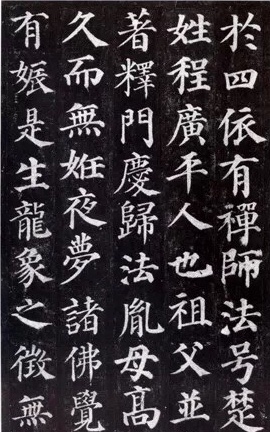 於四依有禪師法号楚
姓程廣平人也祖父並
著釋門慶歸法胤母髙
久而無妊夜夢諸佛覺
有娠是生龍象之徵無